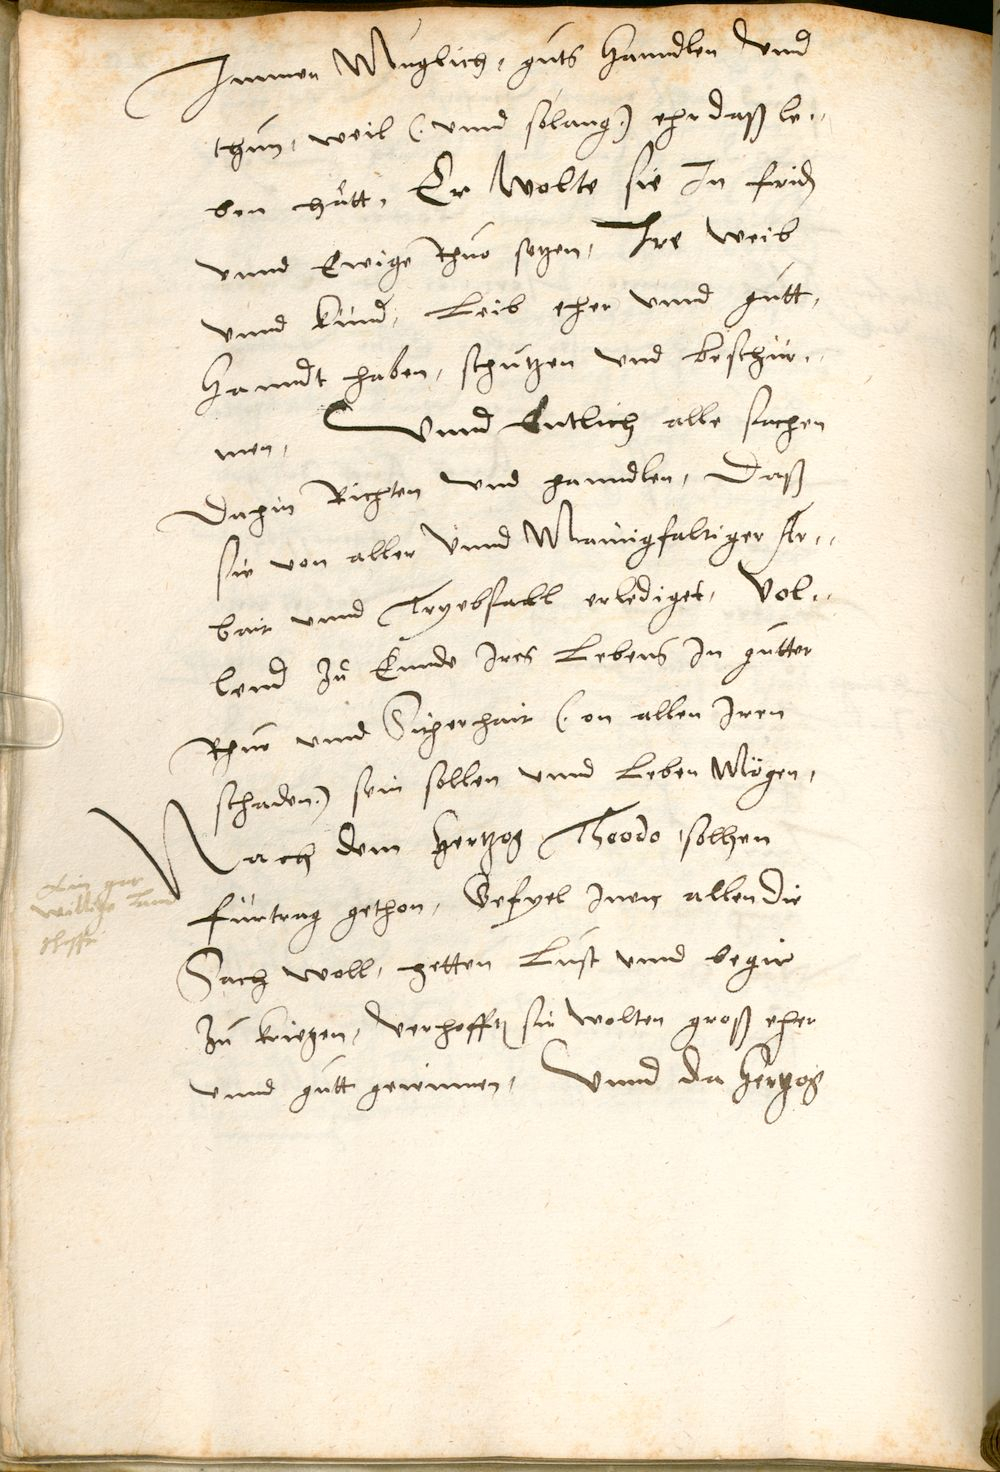 Immer Muglich, guts Hanndlen Vnnd
thun, weil (: vnnd solang:) ehr daß le..
ben hått, Er Wolte sie In frid
vnnd Ewige Rhue setzen, Ire Weib
vnnd Kind, Leib eher vnnd gutt,
Hanndt haben, schutzen vnd beschür..
men, Vnnd Entlich alle sachen
Dahin Richten vnd hanndlen, Daß
sie von aller Vnnd Mannigfaltiger Ar..
bait vnnd Tryebsall erlediget, Vol..
lend Zů Ennde Ires Lebens In gutter
Rhue vnnd Sicherhait (: on allen Iren
schaden:) sein sollen vnnd Leben Mögen,
Nach dem Hertzog Theodo solhen
fürtrag gethon, Gefyel Inen allen die
Sach woll, hetten Lust vnnd begir
Zů kriegen, Verhofften sie wolten groß eher
vnnd gutt gewinnen, Vnnd da Hertzog
Ein gar
willige